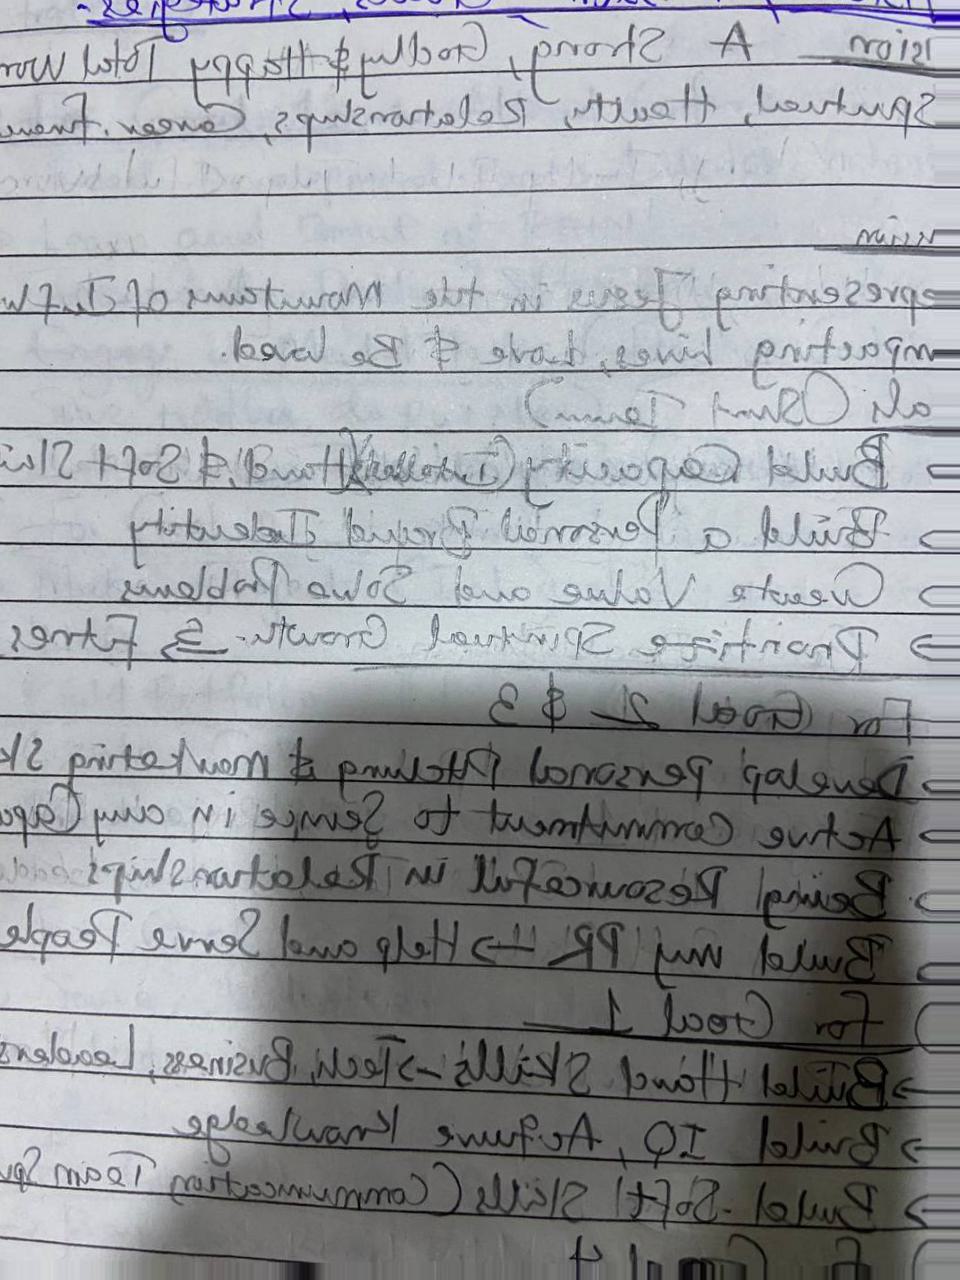 Goals, Strategies -
ision A Strong, Godly & Happy Total
Spiritual, Health, Relationships, Career,
ission
epresenting Jesus in the Mountains of
mpacting Lives, Love & Be loved.
oals (Short Term)
Build Capacity (Intellect, Hand & Soft
Build a Personal Brand Identity
Create Value and Solve Problems
→ Prioritize Spiritual Growth.
For Goal 2 & 3
- Develop personal Pitching & Marketing Sk
Active Commitment to Service in any Capa
Being Resourceful in Relationships
Build my PR → Help and Serve People
For Goal 1
→ Build Hard Skills → Tech, Business, Leaders
→ Build IQ, Acquire Knowledge
→ Build Soft Skills (Communication Team Sp
Goal 4